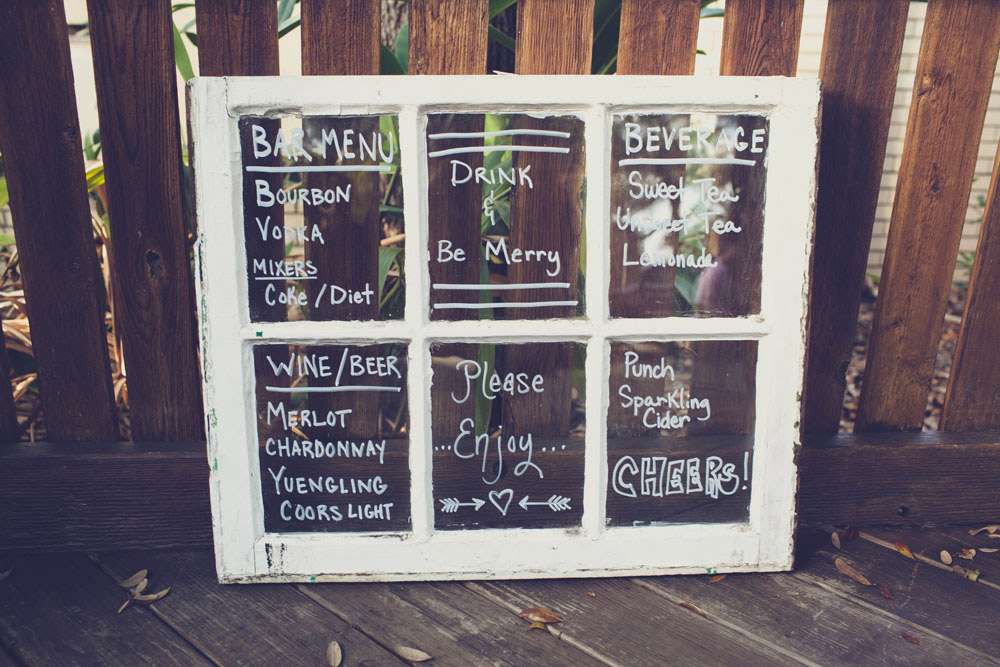 BAR MENU
BOURBON
VODKA
MIXERS
COKE / DIET
DRINK
&
Be Merry
BEVERAGE
Sweet Tea
Unsweet Tea
Lemonade
WINE/BEER
MERLOT
CHARDONWAY
YUENGLING
COORS LIGHT
Please
...Enjoy...
Punch
Sparkling
Cider
CHEERS!